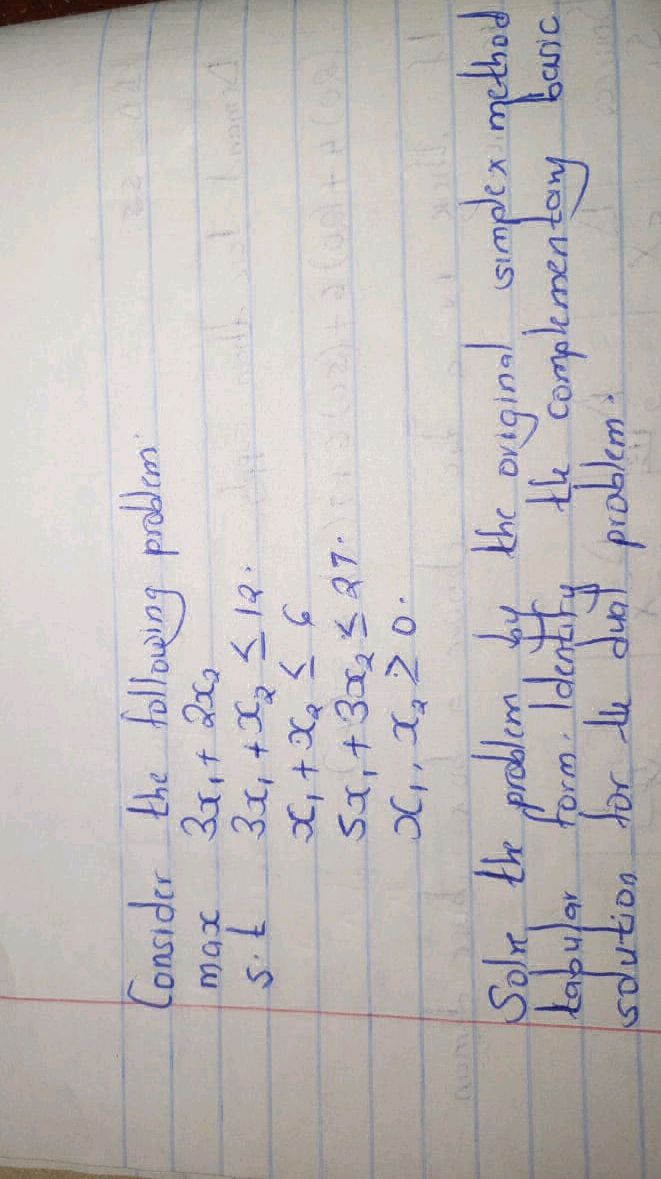 Consider the following problem.
max 3x₁ + 2x₂
s.t 3x₁ + x₂ ≤ 12.
x₁ + x₂ ≤ 6
5x₁ + 3x₂ ≤ 27.
x₁, x₂ ≥ 0.
Solve the problem by the original simplex method
tabular form. Identify the complementary basic
solution for the dual problem.